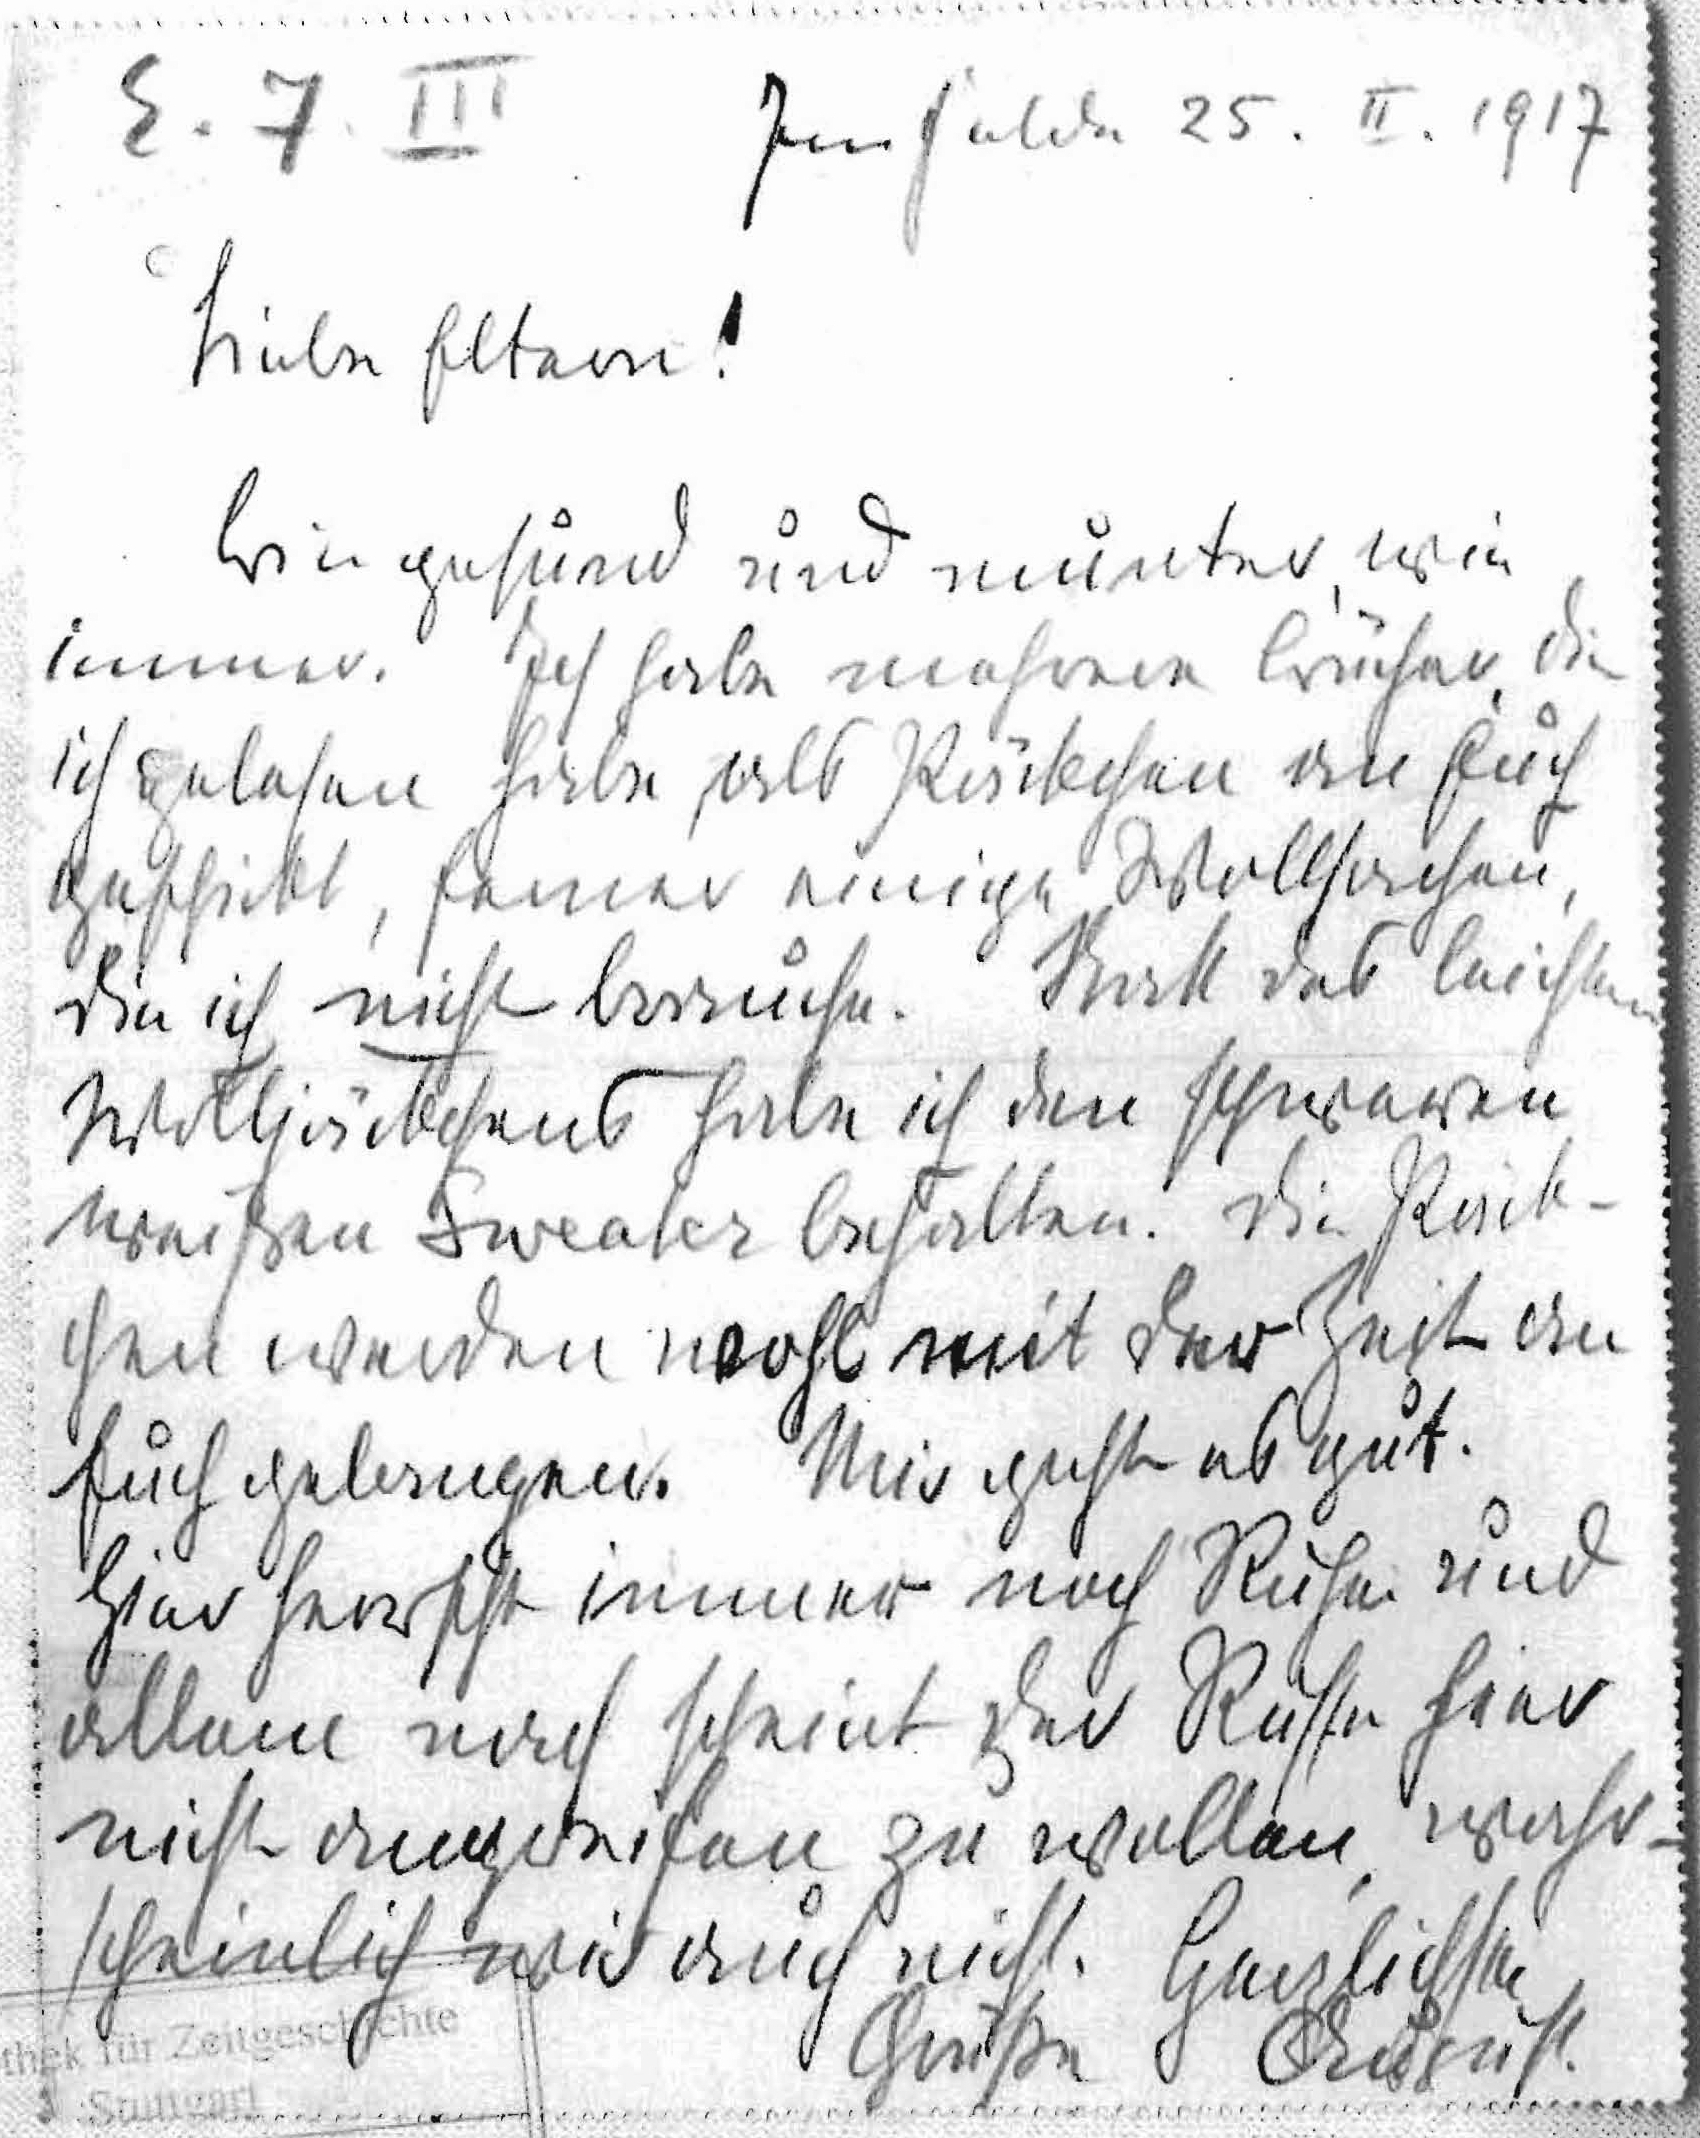 E. 7. III
Im Felde 25. II. 1917
Liebe Eltern!
Bin gesund und munter, wie
immer. Ich habe mehrere Bücher, die
ich gelesen habe, als Päckchen an Euch
geschickt, ferner einige Wollsachen,
die ich nicht brauche. Statt des leichten
Wolljäckchens habe ich den schweren
weißen Sweater behalten. Die Päck-
chen werden wohl mit der Zeit an
Euch gelangen. Mir geht es gut.
Hier herrscht immer noch Ruhe und
allem nach scheint der Russe hier
nicht angreifen zu wollen, wahr-
scheinlich wir auch nicht. Herzlichste
Grüße August.
thek für Zeitgeschichte
Stuttgart